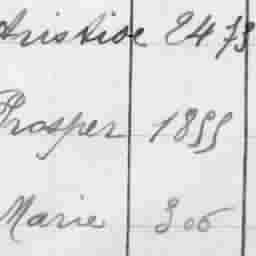 Aristide 2473
Prosper 1899
Marie 306